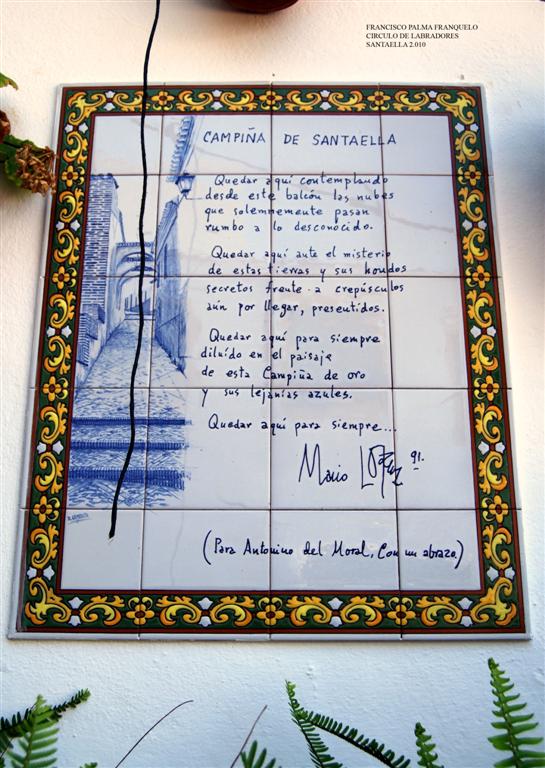 FRANCISCO PALMA FRANQUELO
CIRCULO DE LABRADORES
SANTAELLA 2.010
CAMPIÑA DE SANTAELLA
Quedar aquí contemplando
desde este balcón las nubes
que solemnemente pasan
rumbo a lo desconocido.
Quedar aquí ante el misterio
de estas tierras y sus hondos
secretos frente a crepúsculos
aún por llegar, presentidos.
Quedar aquí para siempre
diluído en el paisaje
de esta Campiña de oro
y sus lejanías azules.
Quedar aquí para siempre...
Mario López 91.
(Para Antonino del Moral, Con un abrazo.)